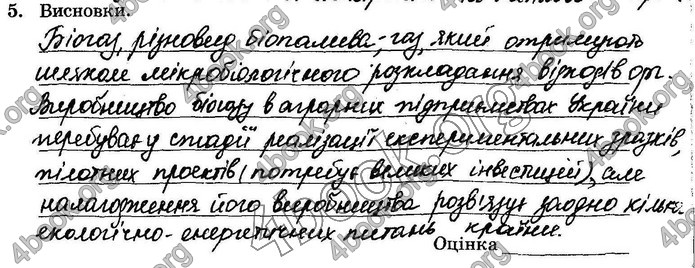 5. Висновки.
Біогаз, різновид біопалива, - газ, який отримують
шляхом мікробіологічного розкладання відходів орг.
Виробництво біогазу в аграрних підприємствах України
перебуває у стадії реалізації експериментальних зразків,
пілотних проектів (потребує великих інвестицій), але
налагодження його виробництва розв'язує заодно кілька
екологічно-енергетичних питань країни.
Оцінка
4book.org